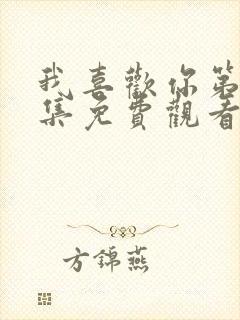 我喜歡你第
集免費觀看
方錦燕